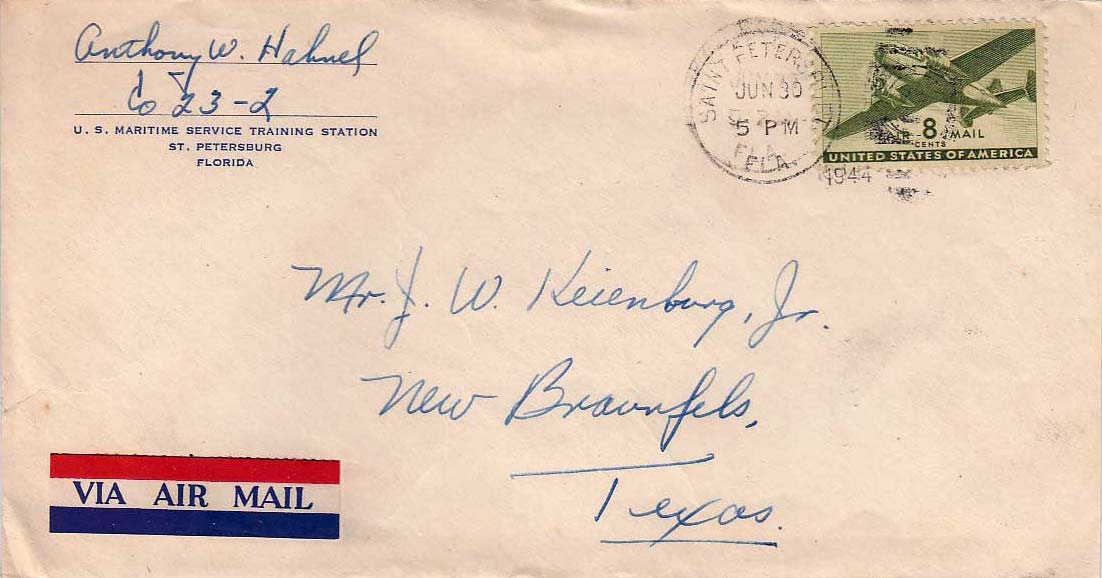 Anthony W. Hahnel
Co 23-2
U. S. MARITIME SERVICE TRAINING STATION
ST. PETERSBURG
FLORIDA
SAINT PETERSBURG
JUN 30
5 PM
FLA.
1944
AIR MAIL
8
CENTS
UNITED STATES OF AMERICA
Mr. J. W. Keienburg, Jr.
New Braunfels,
Texas.
VIA AIR MAIL